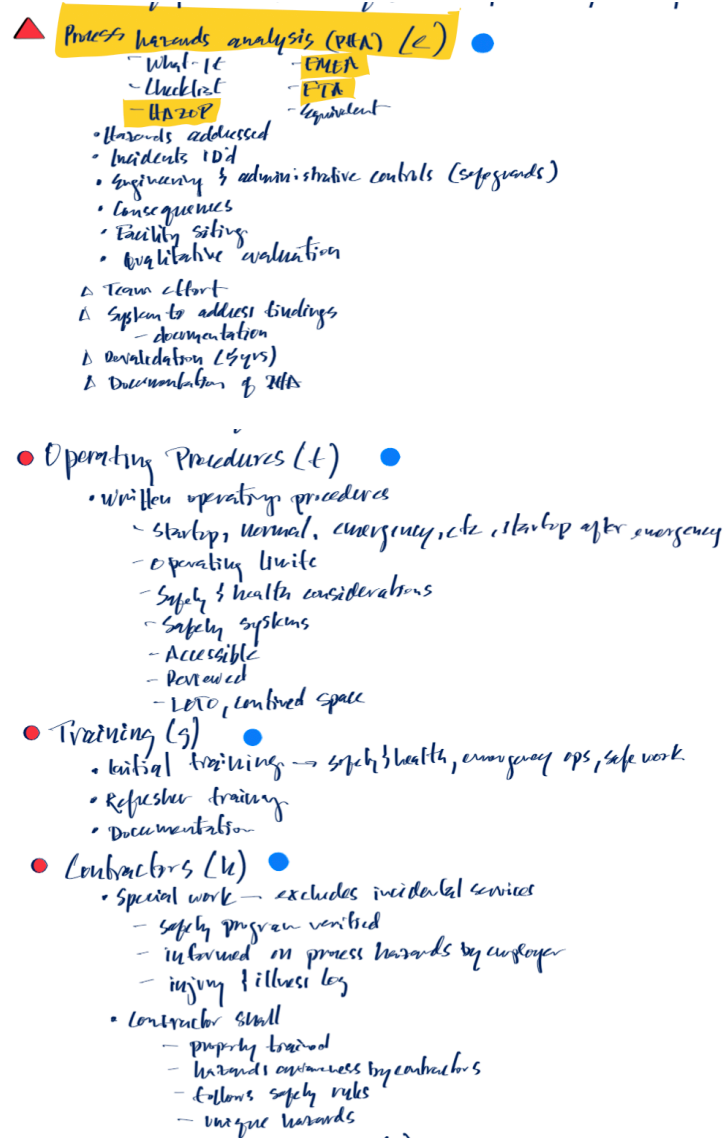 Process hazards analysis (PHA) (e)
- What-If - FMEA
- Checklist - FTA
- HAZOP - Equivalent
• Hazards addressed
• Incidents ID'd
• Engineering & administrative controls (safeguards)
• Consequences
• Facility siting
• Qualitative evaluation
△ Team effort
△ System to address findings
- documentation
△ Revalidation (5yrs)
△ Documentation of PHA
Operating Procedures (f)
• Written operating procedures
- Startup, normal, emergency, etc, startup after emergency
- Operating limits
- Safety & health considerations
- Safety systems
- Accessible
- Reviewed
- LOTO, confined space
Training (g)
• Initial training → safety & health, emergency ops, safe work
• Refresher training
• Documentation
Contractors (h)
• Special work — excludes incidental services
- safety program verified
- informed on process hazards by employer
- injury & illness log
• Contractor shall
- properly trained
- hazards awareness by contractors
- follows safety rules
- unique hazards